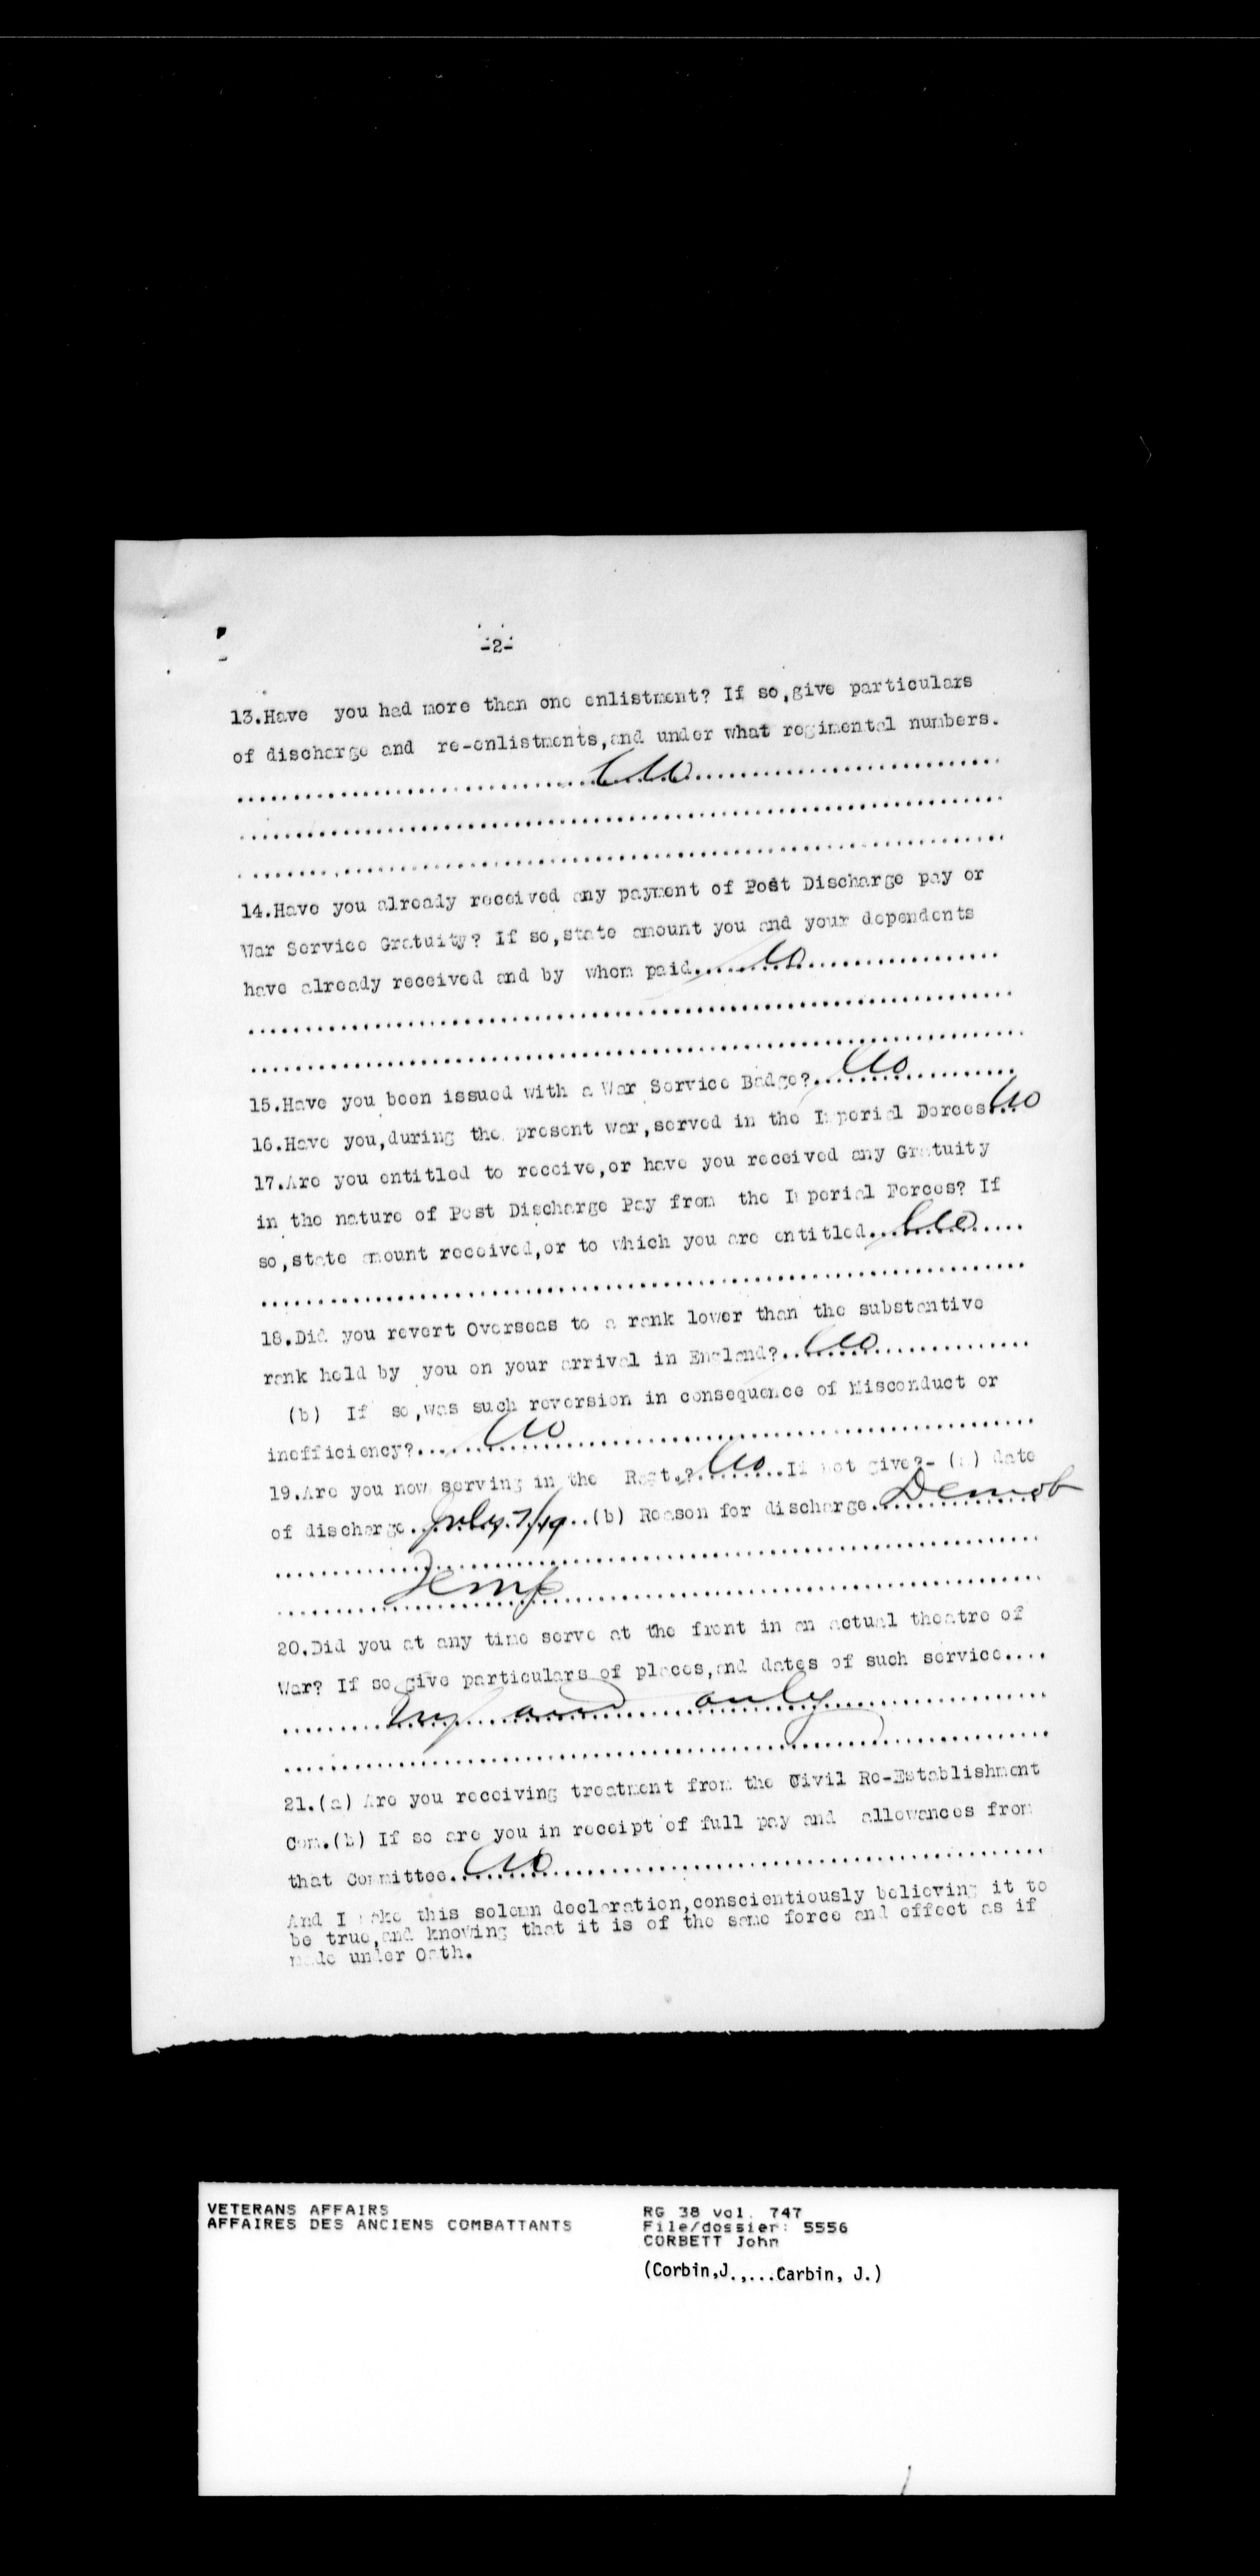 -2-
13.Have you had more than one enlistment? If so,give particulars
of discharge and re-enlistments,and under what regimental numbers.
..............................No..............................
..............................................................
..............................................................
14.Have you already received any payment of Post Discharge pay or
War Service Gratuity? If so,state amount you and your dependents
have already received and by whom paid........No.................
..............................................................
..............................................................
15.Have you been issued with a War Service Badge?...No..........
16.Have you,during the present war,served in the Imperial Forces..No
17.Are you entitled to receive,or have you received any Gratuity
in the nature of Post Discharge Pay from the Imperial Forces? If
so,state amount received,or to which you are entitled....No.....
..............................................................
18.Did you revert Overseas to a rank lower than the substantive
rank held by you on your arrival in England?...No...............
(b) If so,was such reversion in consequence of Misconduct or
inefficiency?......No..........................................
19.Are you now serving in the Regt.?..No.....If not give?- (a) date
of discharge..July.7/19...(b) Reason for discharge.Demob
..............................................................
..........Temp................................................
20.Did you at any time serve at the front in an actual theatre of
War? If so give particulars of places,and dates of such service....
.................only...................
..............................................................
21.(a) Are you receiving treatment from the Civil Re-Establishment
Com.(b) If so are you in receipt of full pay and allowances from
that Committee..No.............................................
And I make this solemn declaration,conscientiously believing it to
be true,and knowing that it is of the same force and effect as if
made under Oath.
VETERANS AFFAIRS
AFFAIRES DES ANCIENS COMBATTANTS
RG 38 vol. 747
File/dossier: 5556
CORBETT John
(Corbin,J.,...Carbin, J.)